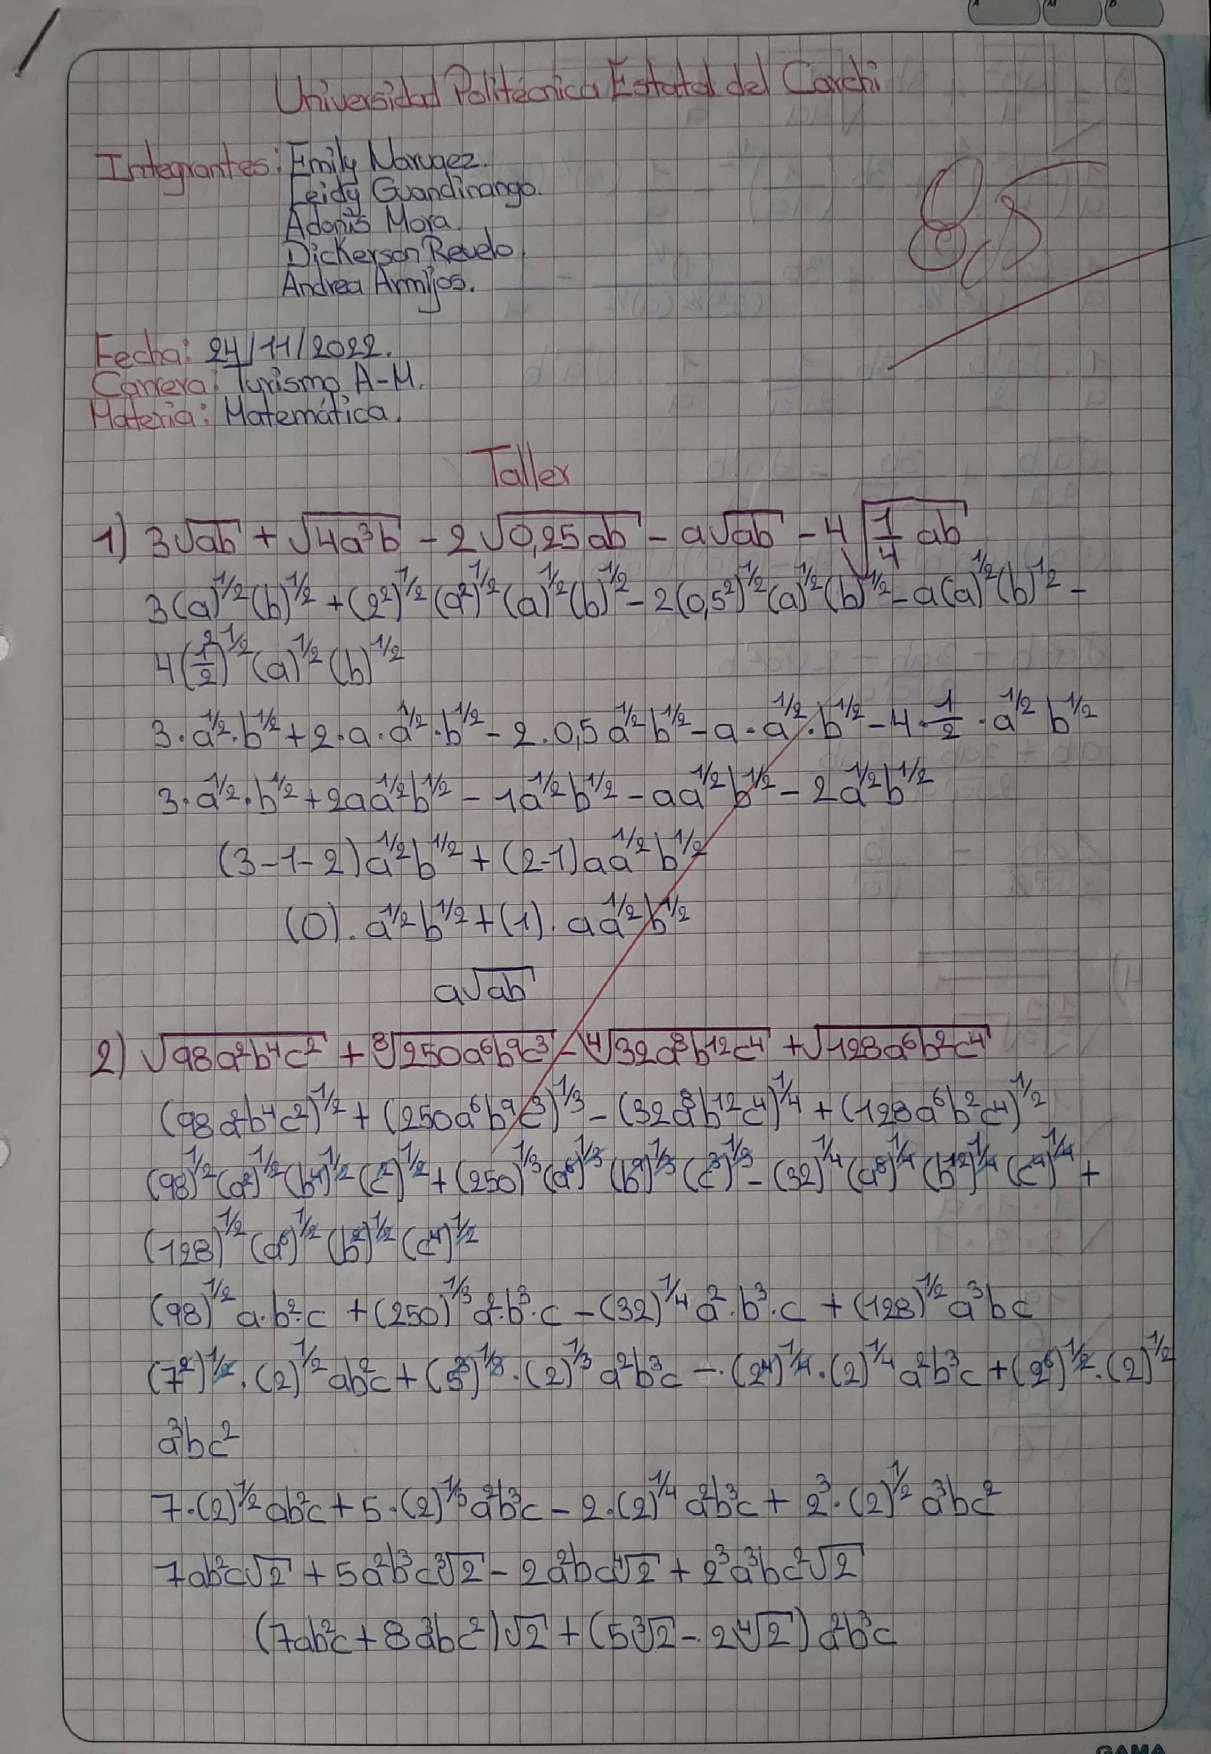 Universidad Politécnica Estatal del Carchi
Integrantes: Emily Narvaez.
Leidy Guandinango.
Adonis Mora.
Dickerson Revelo.
Andrea Armijos.
8,5
Fecha: 24/11/2022.
Carrera: Turismo A-M.
Materia: Matemática.
Taller
1) 3√ab + √4a³b - 2√0,25ab - a√ab - 4√1/4 ab
3(a)^1/2 (b)^1/2 + (2²)^1/2 (a²)^1/2 (a)^1/2 (b)^1/2 - 2(0,5²)^1/2 (a)^1/2 (b)^1/2 - a(a)^1/2 (b)^1/2 -
4(1/2)^2^1/2 (a)^1/2 (b)^1/2
3·a^1/2·b^1/2 + 2·a·a^1/2·b^1/2 - 2·0,5 a^1/2 b^1/2 - a·a^1/2·b^1/2 - 4·1/2·a^1/2 b^1/2
3·a^1/2·b^1/2 + 2aa^1/2 b^1/2 - 1a^1/2 b^1/2 - aa^1/2 b^1/2 - 2a^1/2 b^1/2
(3-1-2)a^1/2 b^1/2 + (2-1)aa^1/2 b^1/2
(0)·a^1/2 b^1/2 + (1)·aa^1/2 b^1/2
a√ab
2) √98a²b⁴c² + ³√250a⁶b⁹c³ - ⁴√32a⁸b¹²c⁴ + √128a⁶b²c⁴
(98a²b⁴c²)^1/2 + (250a⁶b⁹c³)^1/3 - (32a⁸b¹²c⁴)^1/4 + (128a⁶b²c⁴)^1/2
(98)^1/2 (a²)^1/2 (b⁴)^1/2 (c²)^1/2 + (250)^1/3 (a⁶)^1/3 (b⁹)^1/3 (c³)^1/3 - (32)^1/4 (a⁸)^1/4 (b¹²)^1/4 (c⁴)^1/4 +
(128)^1/2 (a⁶)^1/2 (b²)^1/2 (c⁴)^1/2
(98)^1/2 a·b²·c + (250)^1/3 a²·b³·c - (32)^1/4 a²·b³·c + (128)^1/2 a³bc
(7²)^1/2·(2)^1/2 ab²c + (5³)^1/3·(2)^1/3 a²b³c - (2⁴)^1/4·(2)^1/4 a²b³c + (2⁶)^1/2·(2)^1/2
a³bc²
7·(2)^1/2 ab²c + 5·(2)^1/3 a²b³c - 2·(2)^1/4 a²b³c + 2³·(2)^1/2 a³bc²
7ab²c√2 + 5a²b³c³√2 - 2a²bc⁴√2 + 2³a³bc²√2
(7ab²c + 8a³bc²)√2 + (5³√2 - 2⁴√2) a²b³c
GAMA